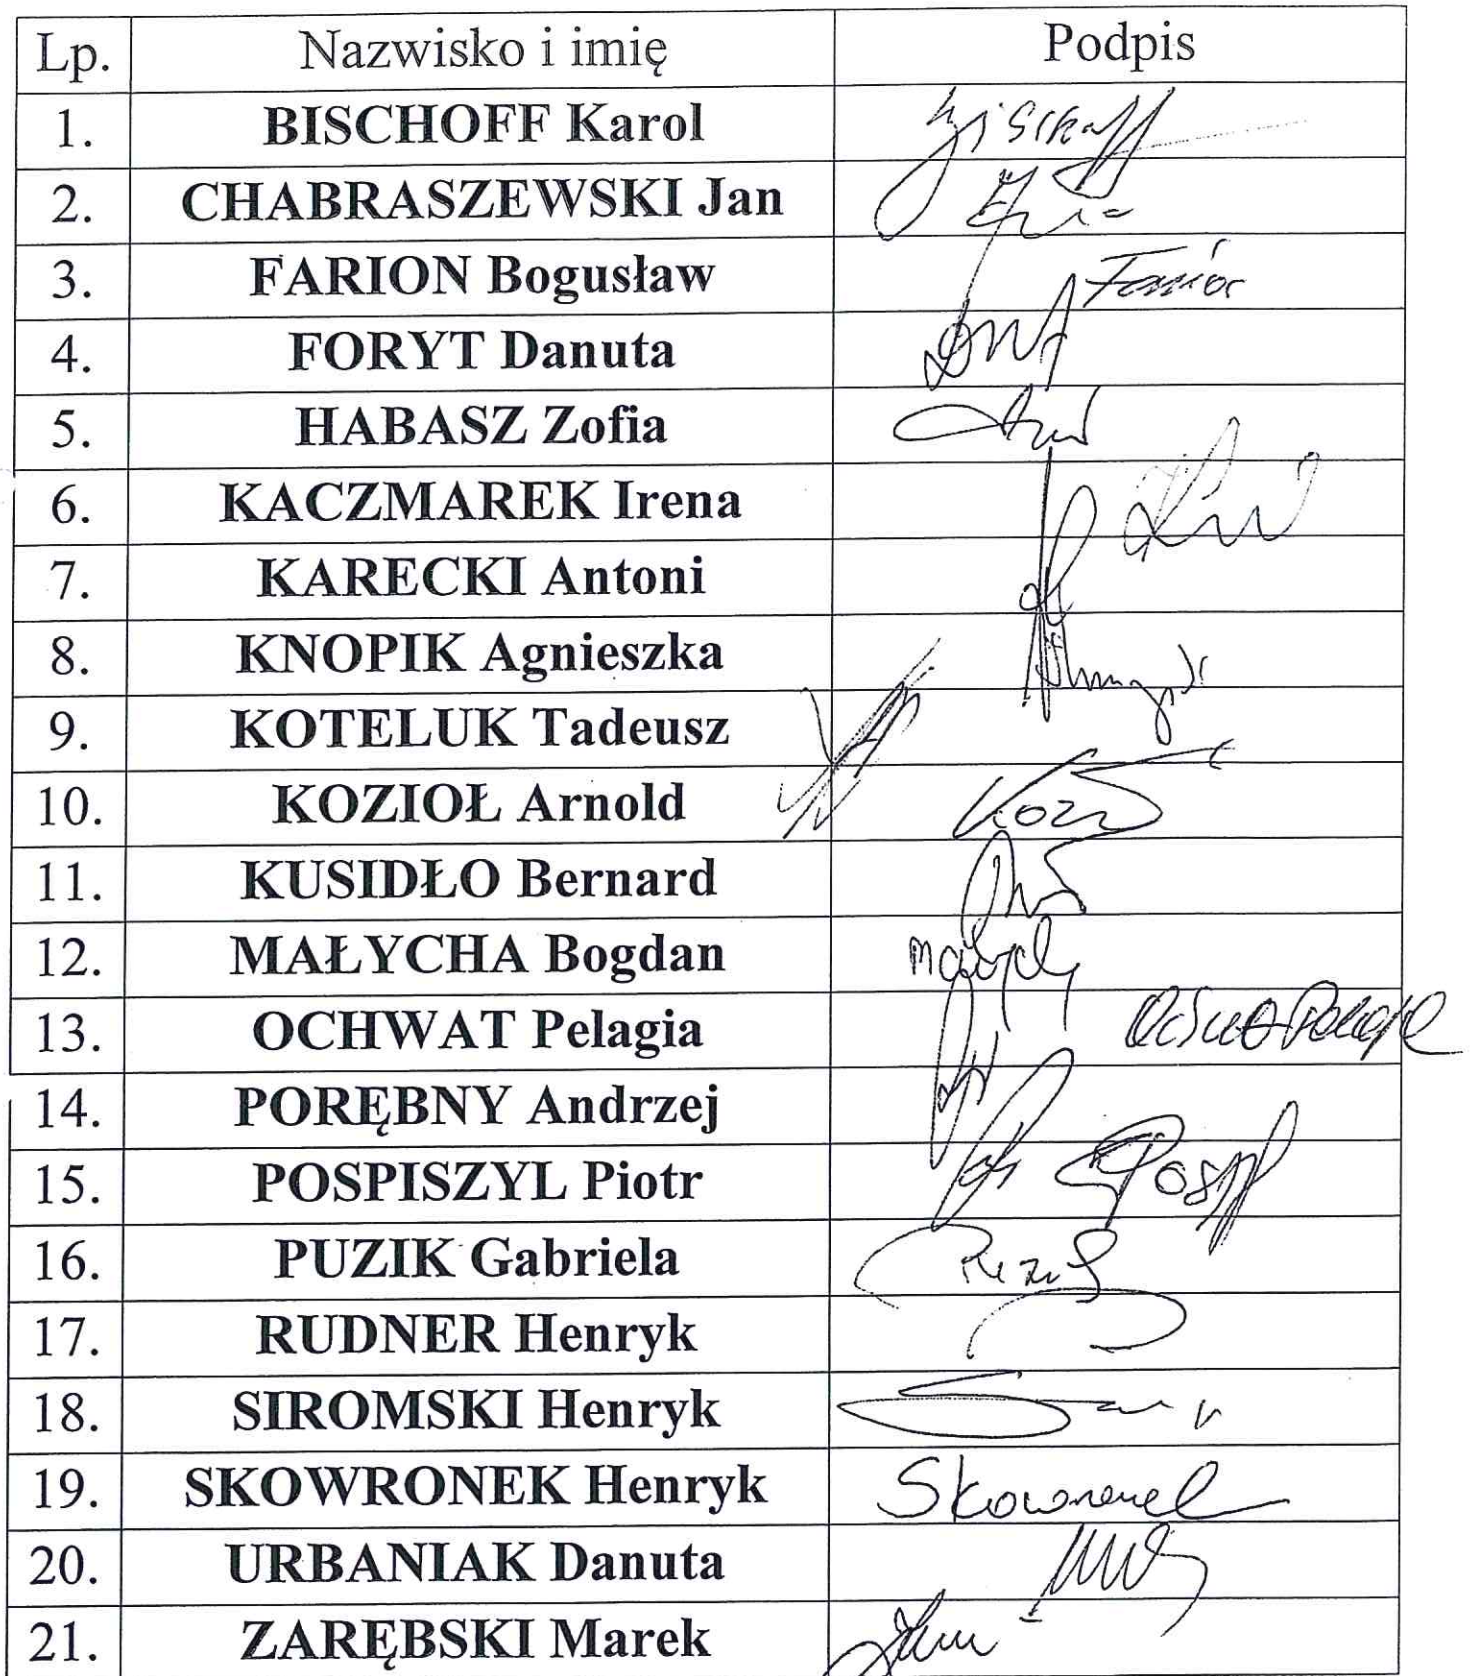 Lp. Nazwisko i imię Podpis
1. BISCHOFF Karol Bischoff
2. CHABRASZEWSKI Jan
3. FARION Bogusław
4. FORYT Danuta
5. HABASZ Zofia
6. KACZMAREK Irena
7. KARECKI Antoni
8. KNOPIK Agnieszka
9. KOTELUK Tadeusz
10. KOZIOŁ Arnold
11. KUSIDŁO Bernard
12. MAŁYCHA Bogdan
13. OCHWAT Pelagia
14. PORĘBNY Andrzej
15. POSPISZYL Piotr
16. PUZIK Gabriela
17. RUDNER Henryk
18. SIROMSKI Henryk
19. SKOWRONEK Henryk Skowronek
20. URBANIAK Danuta
21. ZARĘBSKI Marek